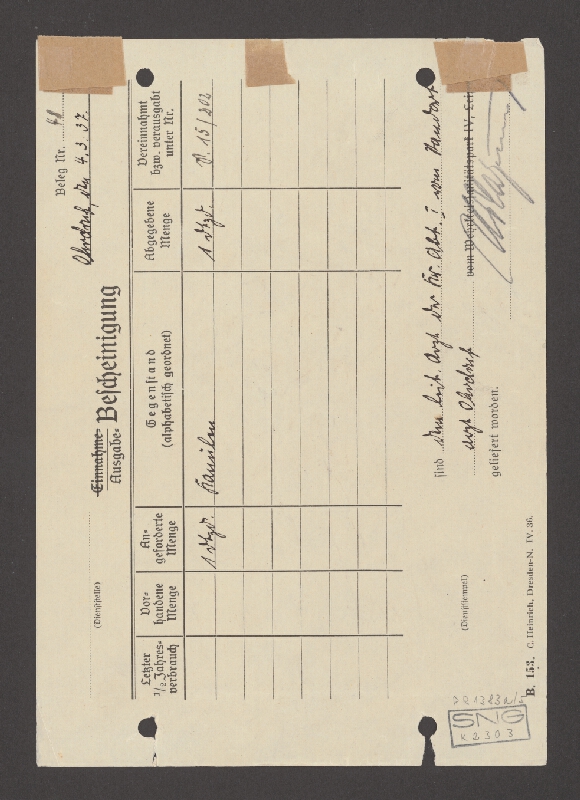 Beleg Nr. 41
Ohrdruf, den 4.3.37.
(Dienststelle)
Einnahme-
Ausgabe-
Bescheinigung
Letzter ½ Jahres-verbrauch
Vor-handene Menge
An-geforderte Menge
Gegenstand (alphabetisch geordnet)
Abgegebene Menge
Vereinnahmt bzw. verausgabt unter Nr.
1 Dtzd. Kanülen 1 Dtzd. V. 15/202
sind dem leit. Arzt der Kr. Abt. I vom Standort
arzt Ohrdruf vom Wehrkreissanitätspark IV,
geliefert worden.
(Dienststempel)
B. 153. C. Heinrich, Dresden-N. IV. 36.
SNG
K 2303